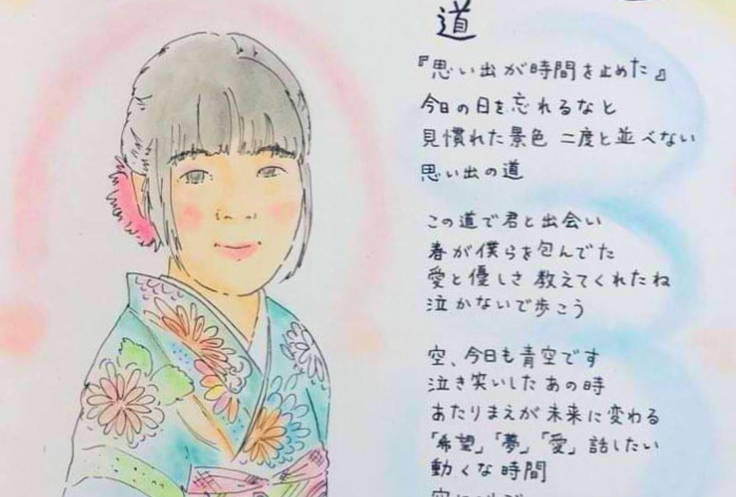 道
『思い出が時間を止めた』
今日の日を忘れるなと
見慣れた景色 二度と並べない
思い出の道
この道で君と出会い
春が僕らを包んでた
愛と優しさ 教えてくれたね
泣かないで歩こう
空、今日も青空です
泣き笑いした あの時
あたりまえが 未来に変わる
「希望」「夢」「愛」話したい
動くな時間